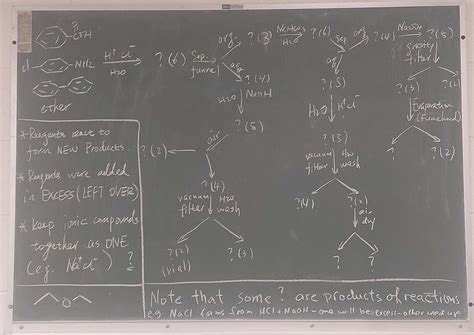 O
OH
Cl
NH2
H+ Cl-
H2O
ether
? (6)
Sep.
funnel
org
? (3)
NaHCO3
H2O
? (6)
Sep.
org
? (4)
Na2SO4
? (5)
gravity
filter
aq
? (4)
H2O
NaOH
? (5)
H2O
H+Cl-
? (5)
? (3)
? (2)
Evaporation
(Fumehood)
?
? (2)
air
? (2)
? (4)
vacuum
filter
H2O
wash
vacuum
filter
H2O
wash
? (4)
? (2)
air
dry
?
?
? (2)
(vial)
? (3)
* Reagents react to
form NEW Products.
* Reagents were added
in EXCESS (LEFT OVER)
* Keep ionic compounds
together as ONE
(e.g. Na+Cl-) ?
O
Note that some ? are products of reactions
e.g. NaCl forms from HCl + NaOH - one will be excess - other used up